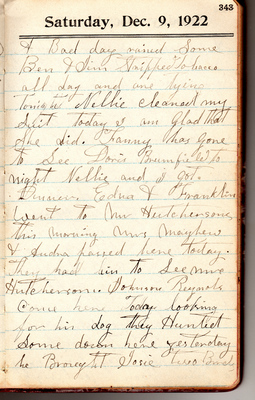 343
Saturday, Dec. 9, 1922
A Bad day rained some
Ben & Jim Stripped Tobacco
all day and are tying
tonight Nellie cleaned my
Suit today I am Glad that
she did. has Gone
to See Doris Brumfield to
night Nellie and I got
Dinner. Edna & Franklin
went to Mr Hutchersons
this morning Mrs Mayhew
& passed here today.
They had bin to See Mrs
Hutcherson. Johnson Reynolds
Come here Today looking
for his dog they Hunted
Some down here yesterday
he Brought Josie two Birds